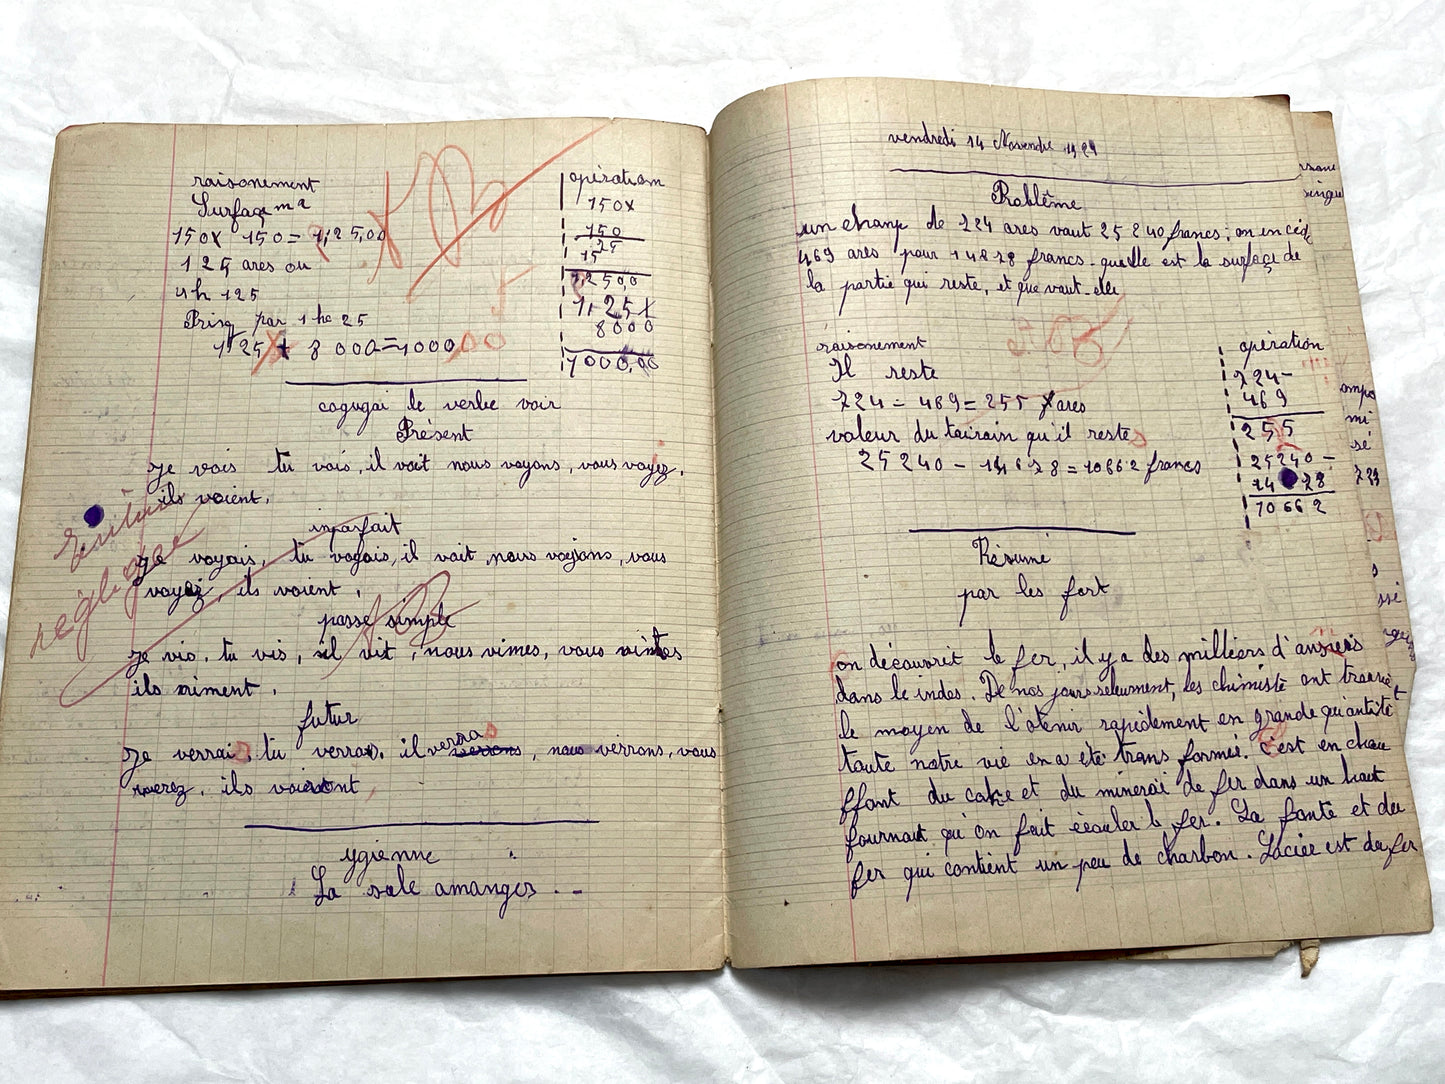 raisonement
opération
Surfaç m²
150x
150x 150 = 1,25,00
150
25
15
125 ares ou
1,250,0
1h 125
1,25x
Prisq par 1 ha 25
8000
1,25 x 8 000 = 1000,00
1000,00
cogugai le verbe voir
Présent
Je vois tu vois, il voit nous voyons, vous voyez,
ils voient.
Ecriture
négligée
inparfait
Je voyais, tu voyais, il voit, nous voyions, vous
voyez, ils voient,
passé simple
Je vis, tu vis, il vit, nous vimes, vous vintes
ils viment,
futur
Je verrais tu verras, il verra verrons, nous verrons, vous
verez, ils voiront,
ygienne
La sale amanger --
vendredi 14 Novembre
Problème
un champ de 724 ares vaut 25240 francs; on en céde
469 ares pour 14878 francs. quelle est la surfaçe de
la partie qui reste, et que vaut-elle
raisonement
opération
Il reste
724-
469
724 - 469 = 255 ares
255
valeur du tairain qu'il restes
25240-
25240 - 14678 = 10662 francs
14 78
10662
Résumé
par les fort
on découvrit le fer, il y a des milliers d'ansiers
dans le indes. De nos jours seleument, les chimiste ont trouvèt
le moyen de l'otenir rapidement en grande quantité
toute notre vie en a été trans formeé. c'est en chau
ffant du cake et du minerai de fer dans un haut
fournaut qu'on fait écouler le fer. La fonte et du
fer qui contient un peu de charbon. Lacier est du fer